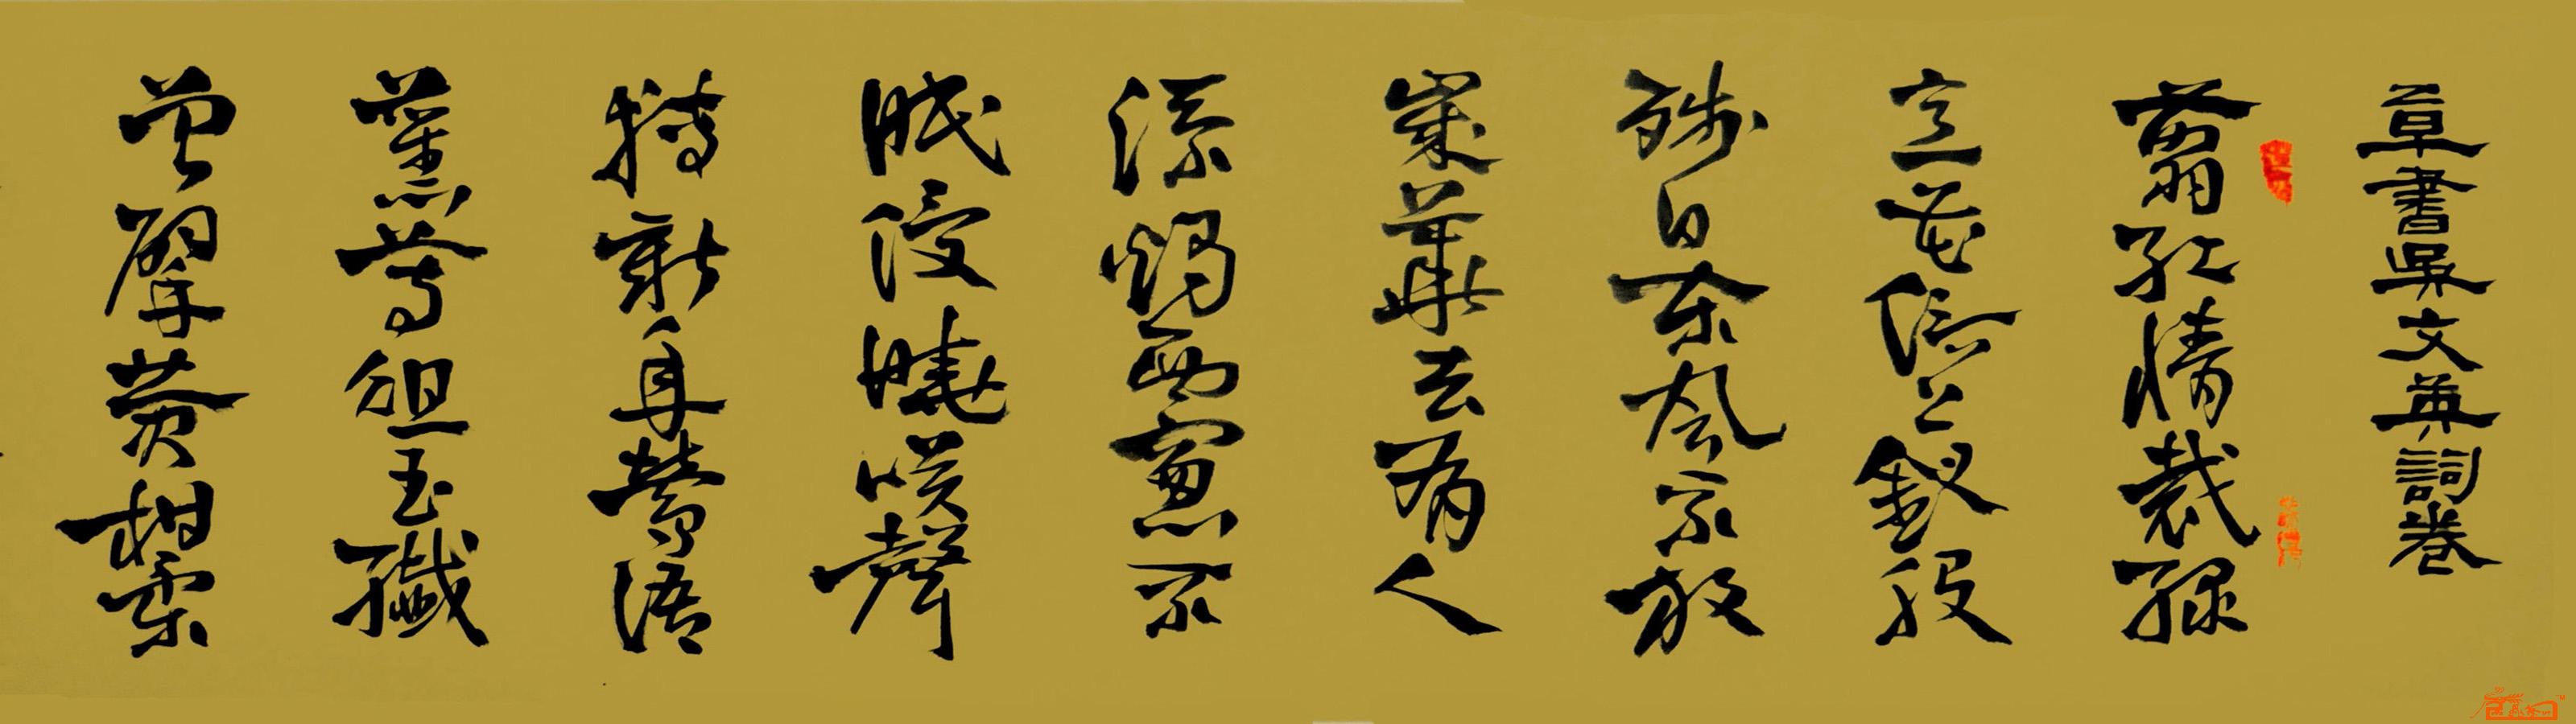 章書吳文英詞卷
翦紅情裁綠
意花信上釵股
殘日東風不放
歲華去有人
添燭西窻不
眠侵曉咲聲
轉新年鶯語
舊尊俎玉纖
曾擘黃柑柔